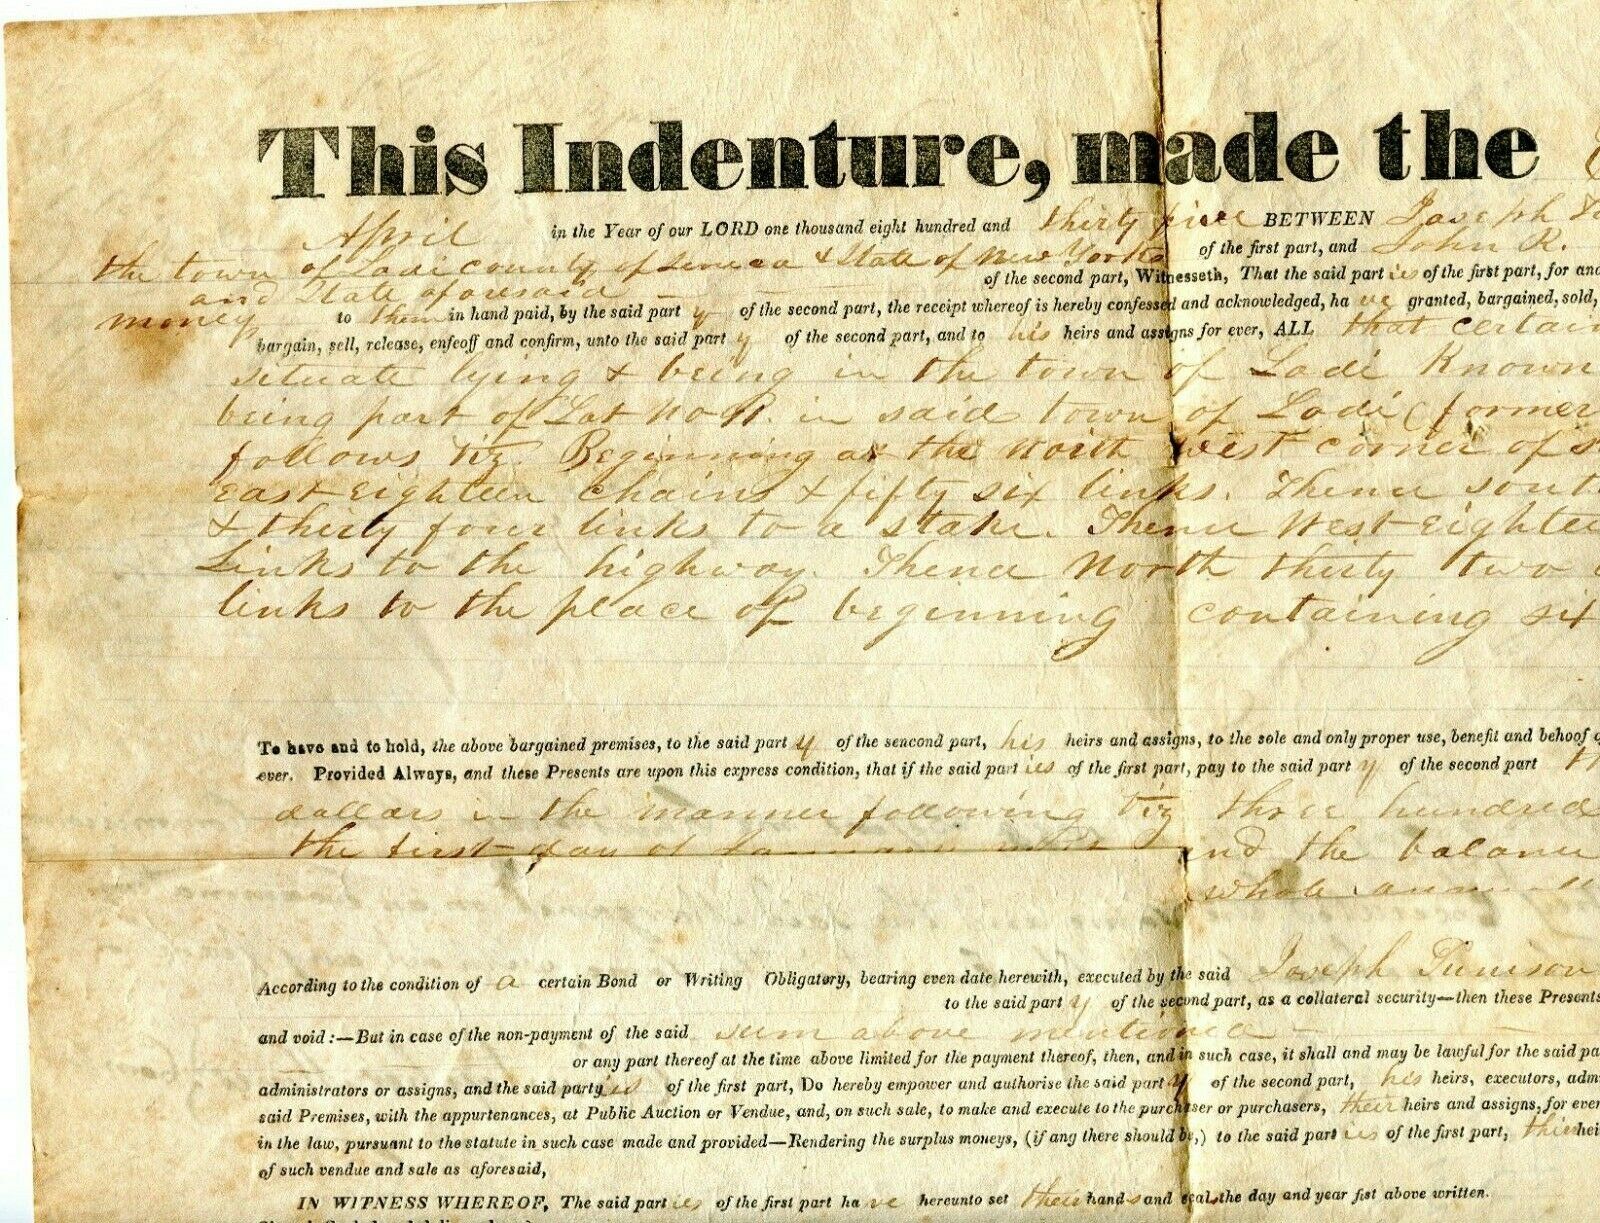 This Indenture, made the
April in the Year of our LORD one thousand eight hundred and thirty five BETWEEN Joseph
the town of Lodi county of Seneca & State of New York of the first part, and John R.
and State aforesaid of the second part, Witnesseth, That the said part ies of the first part, for and
money to them in hand paid, by the said part y of the second part, the receipt whereof is hereby confessed and acknowledged, ha ve granted, bargained, sold,
bargain, sell, release, enfeoff and confirm, unto the said part y of the second part, and to his heirs and assigns for ever, ALL that certain
situate lying & being in the town of Lodi Known
being part of Lot No in said town of Lodi (former
follows viz. Beginning at the North west corner of
East Eighteen chains & fifty six links. Thence sout
& thirty four links to a stake. Thence West Eightee
Links to the highway. Thence North thirty two
links to the place of beginning containing six
To have and to hold, the above bargained premises, to the said part y of the sencond part, his heirs and assigns, to the sole and only proper use, benefit and behoof
ever. Provided Always, and these Presents are upon this express condition, that if the said part ies of the first part, pay to the said part y of the second part
dollars in the manner following viz three hundred
the first day of January and the balance
whole
According to the condition of a certain Bond or Writing Obligatory, bearing even date herewith, executed by the said Joseph Tunison
to the said part y of the second part, as a collateral security—then these Presents
and void :—But in case of the non-payment of the said sum above mentioned
or any part thereof at the time above limited for the payment thereof, then, and in such case, it shall and may be lawful for the said pa
administrators or assigns, and the said party ies of the first part, Do hereby empower and authorise the said part y of the second part, his heirs, executors, adm
said Premises, with the appurtenances, at Public Auction or Vendue, and, on such sale, to make and execute to the purchaser or purchasers, their heirs and assigns, for ever
in the law, pursuant to the statute in such case made and provided—Rendering the surplus moneys, (if ang there should be,) to the said part ies of the first part, their hei
of such vendue and sale as aforesaid,
IN WITNESS WHEREOF, The said part ies of the first part ha ve hereunto set their hands and seals the day and year fist above written.